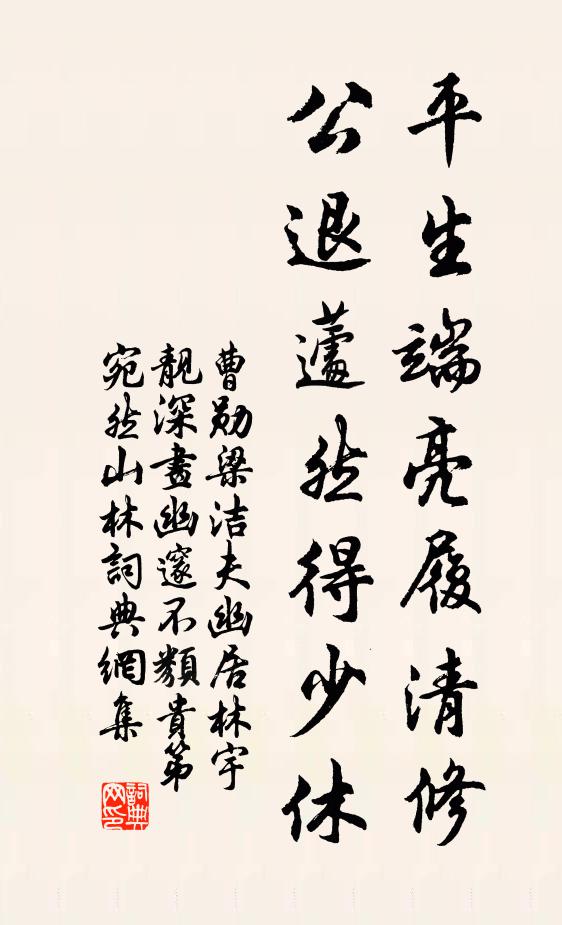 平生端亮履清修
公退蘧然得少休
曹勛梁洁夫幽居林宇
靚深盡幽邃不類貴第
宛然山林詞典網集
詞典
网印